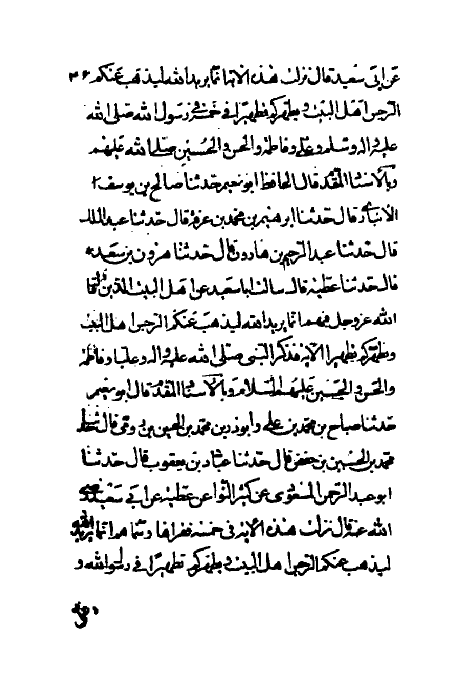 عن ابي سعيد قال نزلت هذه الآية انما يريد الله ليذهب عنكم ٣٦
الرجس اهل البيت ويطهركم تطهيرا في خمسة في رسول الله صلى الله
عليه واله وسلم وعلي وفاطمة والحسن والحسين صلى الله عليهم
وبالاسناد المقدم قال الحافظ ابو نعيم حدثنا صالح بن يوسف
الانباري قال حدثنا ابرهيم بن محمد بن عرفة قال حدثنا عبد الملك
قال حدثنا عبد الرحيم بن هارون قال حدثنا هرون بن سعد
قال حدثنا عطية قال سالت ابا سعيد عن اهل البيت الذين قال
الله عز وجل فيهم انما يريد الله ليذهب عنكم الرجس اهل البيت
ويطهركم تطهيرا الآية فذكر النبي صلى الله عليه واله وعليا وفاطمة
والحسن والحسين عليهم السلام وبالاسناد المقدم قال ابو نعيم
حدثنا صباح بن محمد بن علي وابوذر بن محمد بن الحسين بن قال
محمد بن الحسين بن حفص قال حدثنا عباد بن يعقوب قال حدثنا
ابو عبد الرحمن المسعودي عن كثير النوا عن عطية عن ابي سعيد رضي
الله عنه قال نزلت هذه الاية في خمسة نفر وسماهم انما يريد الله
ليذهب عنكم الرجس اهل البيت ويطهركم تطهيرا في رسول الله و